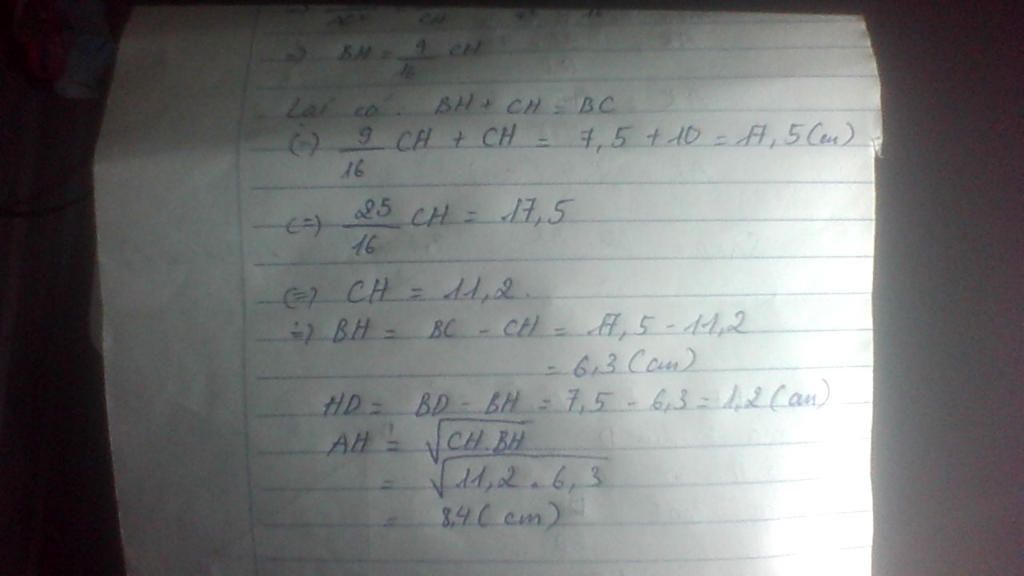 =) BH = 9/16 CH
Lại có. BH + CH = BC
(=) 9/16 CH + CH = 7,5 + 10 = 17,5 (cm)
(=) 25/16 CH = 17,5
(=) CH = 11,2.
=) BH = BC - CH = 17,5 - 11,2
= 6,3 (cm)
HD = BD - BH = 7,5 - 6,3 = 1,2 (cm)
AH = √CH.BH
= √11,2 . 6,3
= 8,4 (cm)